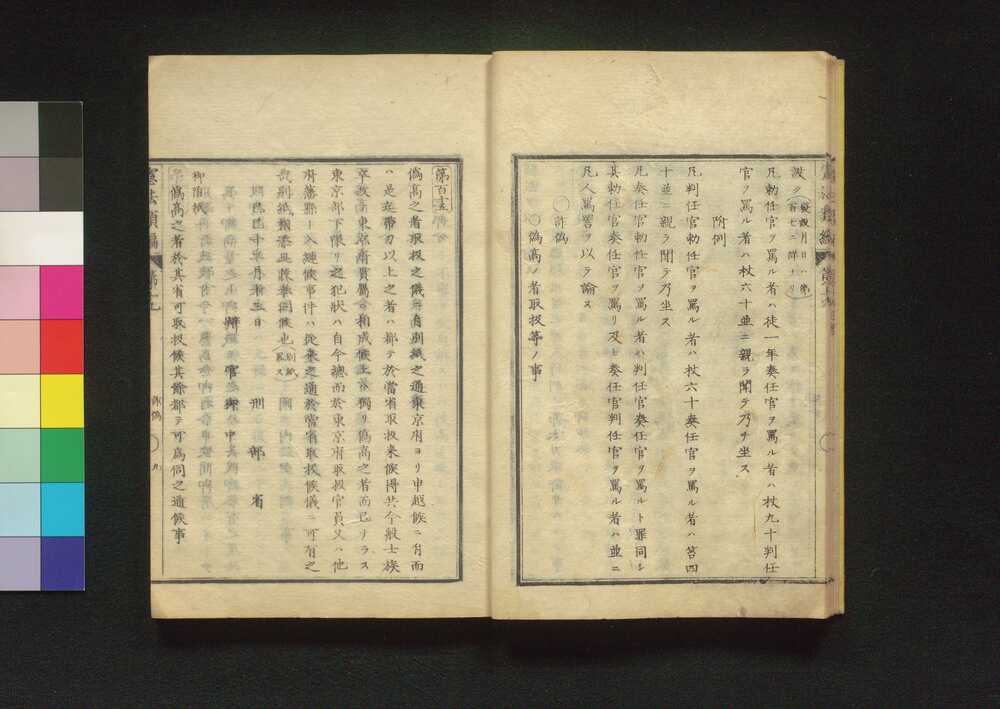 凡勅任官ヲ罵ル者ハ徒一年奏任官ヲ罵ル者ハ杖九十判任
官ヲ罵ル者ハ杖六十並ニ親ラ聞テ乃チ坐ス
附例
凡判任官勅任官ヲ罵ル者ハ杖六十奏任官ヲ罵ル者ハ笞四
十並ニ親ラ聞テ乃坐ス
凡奏任官勅任官ヲ罵ル者ハ判任官奏任官ヲ罵ルト罪同シ
其勅任官奏任官ヲ罵リ及ヒ奏任官判任官ヲ罵ル者ハ並ニ
凡人罵詈ヲ以テ論ス
○詐偽
○偽高ノ者取扱等ノ事
第百十五
偽高之者取扱之儀ニ付別紙之通東京府ヨリ申越候ニ付而
ハ是迄帯刀以上之者ハ都テ於當省取扱来候得共今般士族
東京部下限リ之犯状ハ自今總而於東京府取扱官員又ハ他
府藩縣ヘ入縺候事件ハ従来之通於當省取扱候儀ニ可有之
十二月十三日
刑部省
辨官御中
御附札
偽高之者於其省可取扱候其餘都テ可為伺之通候事
憲法類編
詐偽
九